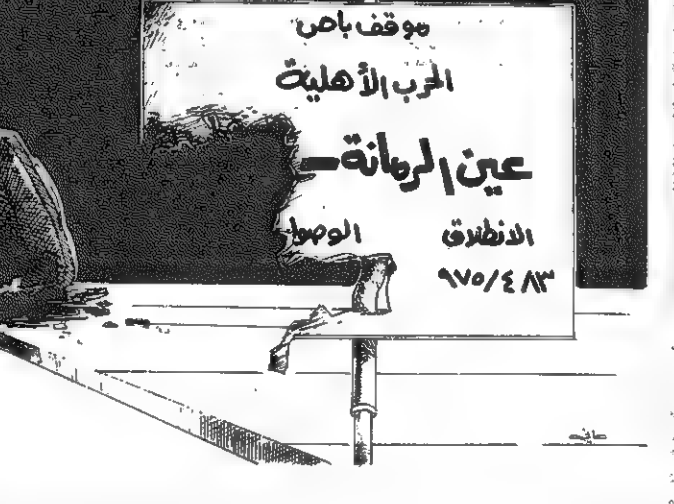 موقف باص
الحرب الأهلية
عين الرمانة –
الانطلاق الوصول
٩٧٥/٤/١٣